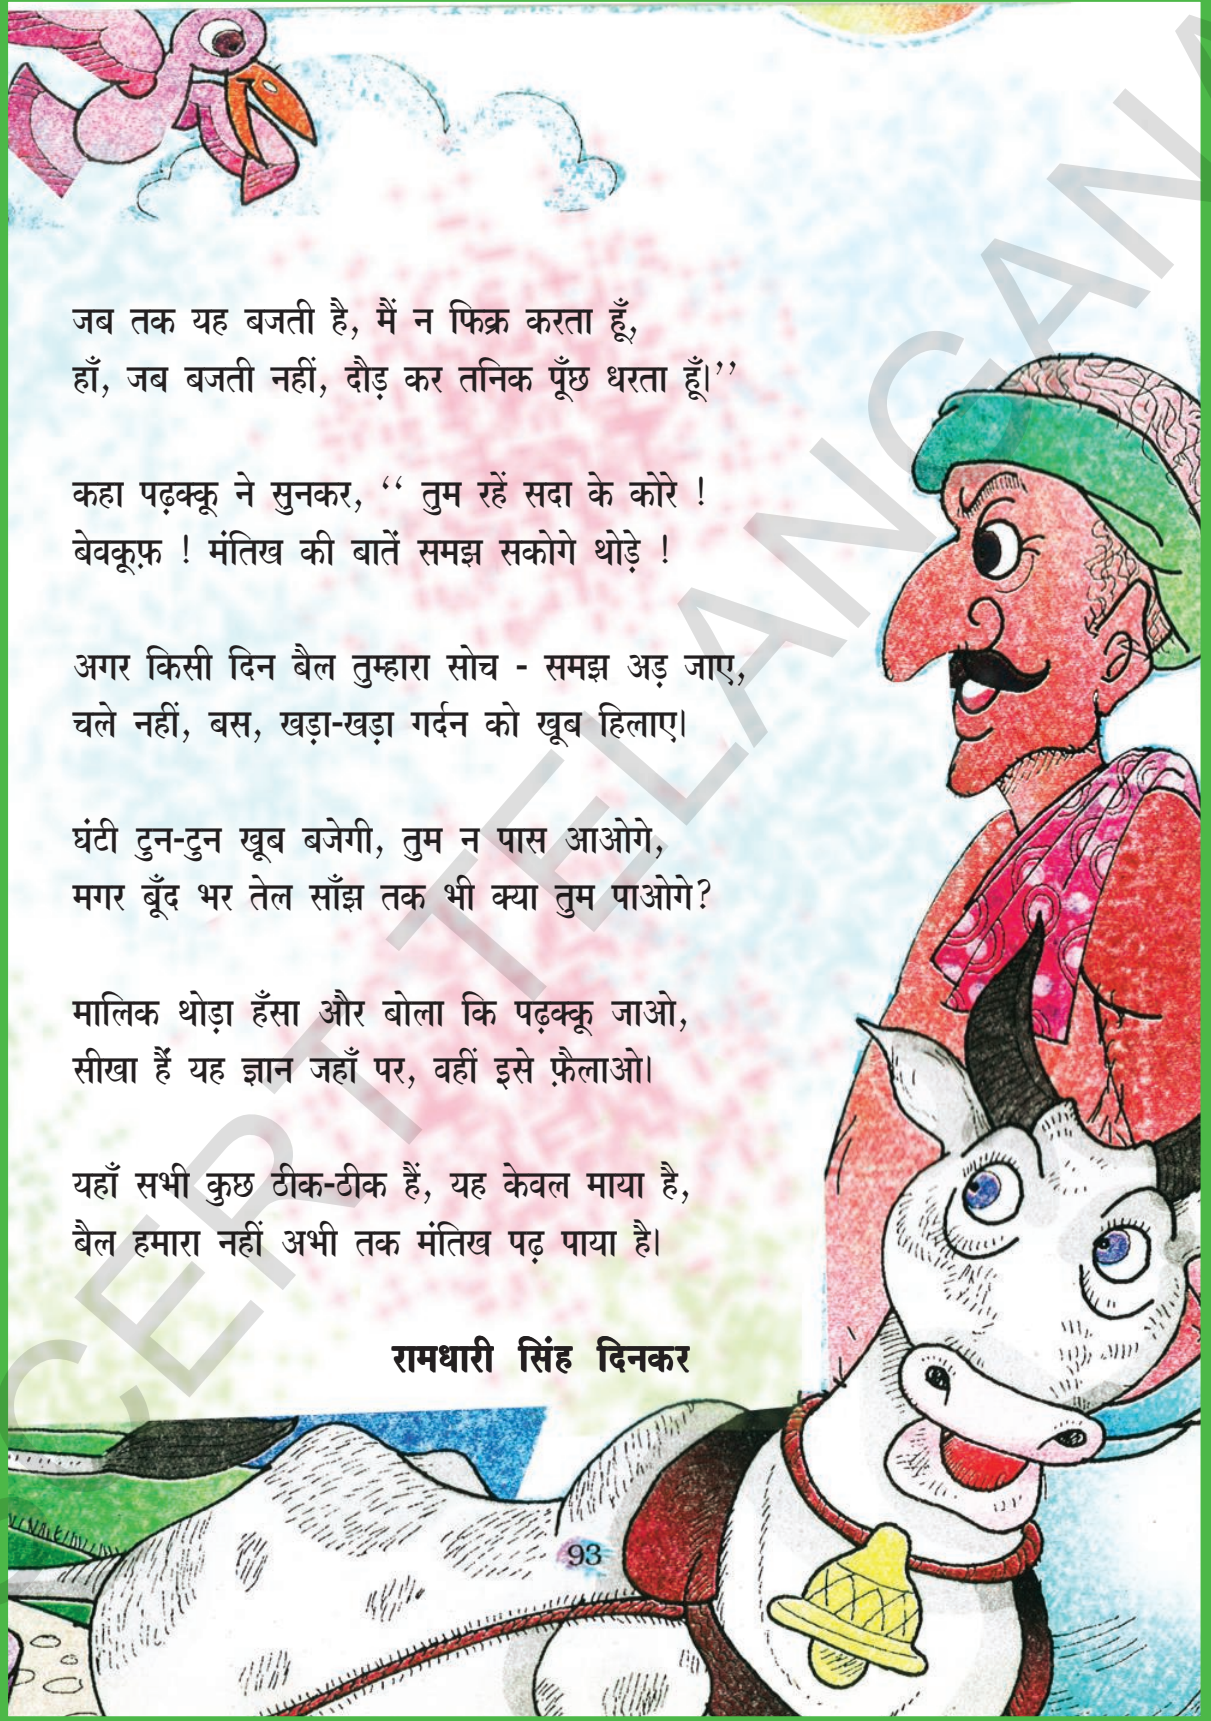 जब तक यह बजती है, मैं न फिक्र करता हूँ,
हाँ, जब बजती नहीं, दौड़ कर तनिक पूँछ धरता हूँ।’’
कहा पढ़क्कू ने सुनकर, ‘‘ तुम रहें सदा के कोरे !
बेवकूफ़ ! मंतिख की बातें समझ सकोगे थोड़े !
अगर किसी दिन बैल तुम्हारा सोच - समझ अड़ जाए,
चले नहीं, बस, खड़ा-खड़ा गर्दन को खूब हिलाए।
घंटी टुन-टुन खूब बजेगी, तुम न पास आओगे,
मगर बूँद भर तेल साँझ तक भी क्या तुम पाओगे?
मालिक थोड़ा हँसा और बोला कि पढ़क्कू जाओ,
सीखा हैं यह ज्ञान जहाँ पर, वहीं इसे फ़ैलाओ।
यहाँ सभी कुछ ठीक-ठीक हैं, यह केवल माया है,
बैल हमारा नहीं अभी तक मंतिख पढ़ पाया है।
रामधारी सिंह दिनकर
93
SCERT TELANGANA